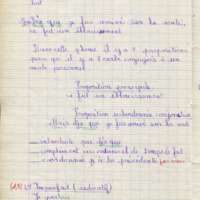 but
Mais dès que je fus arrivé sur la route,
ce fut un éblouissement
Dans cette phrase il y a 2 propositions
parce que il y a 2 verbes conjugués à un
mode personnel
Proposition principale
ce fut un éblouissement
Proposition subordonnée conjonctive
Mais dès que je fus arrivé sur la route
introduite par dès que
complément circonstanciel de temps de fut
coordonnée à la précédente par mais
2) Imparfait (indicatif)
Je